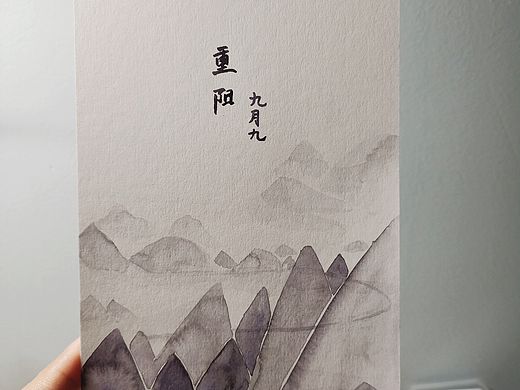 重阳
九月九